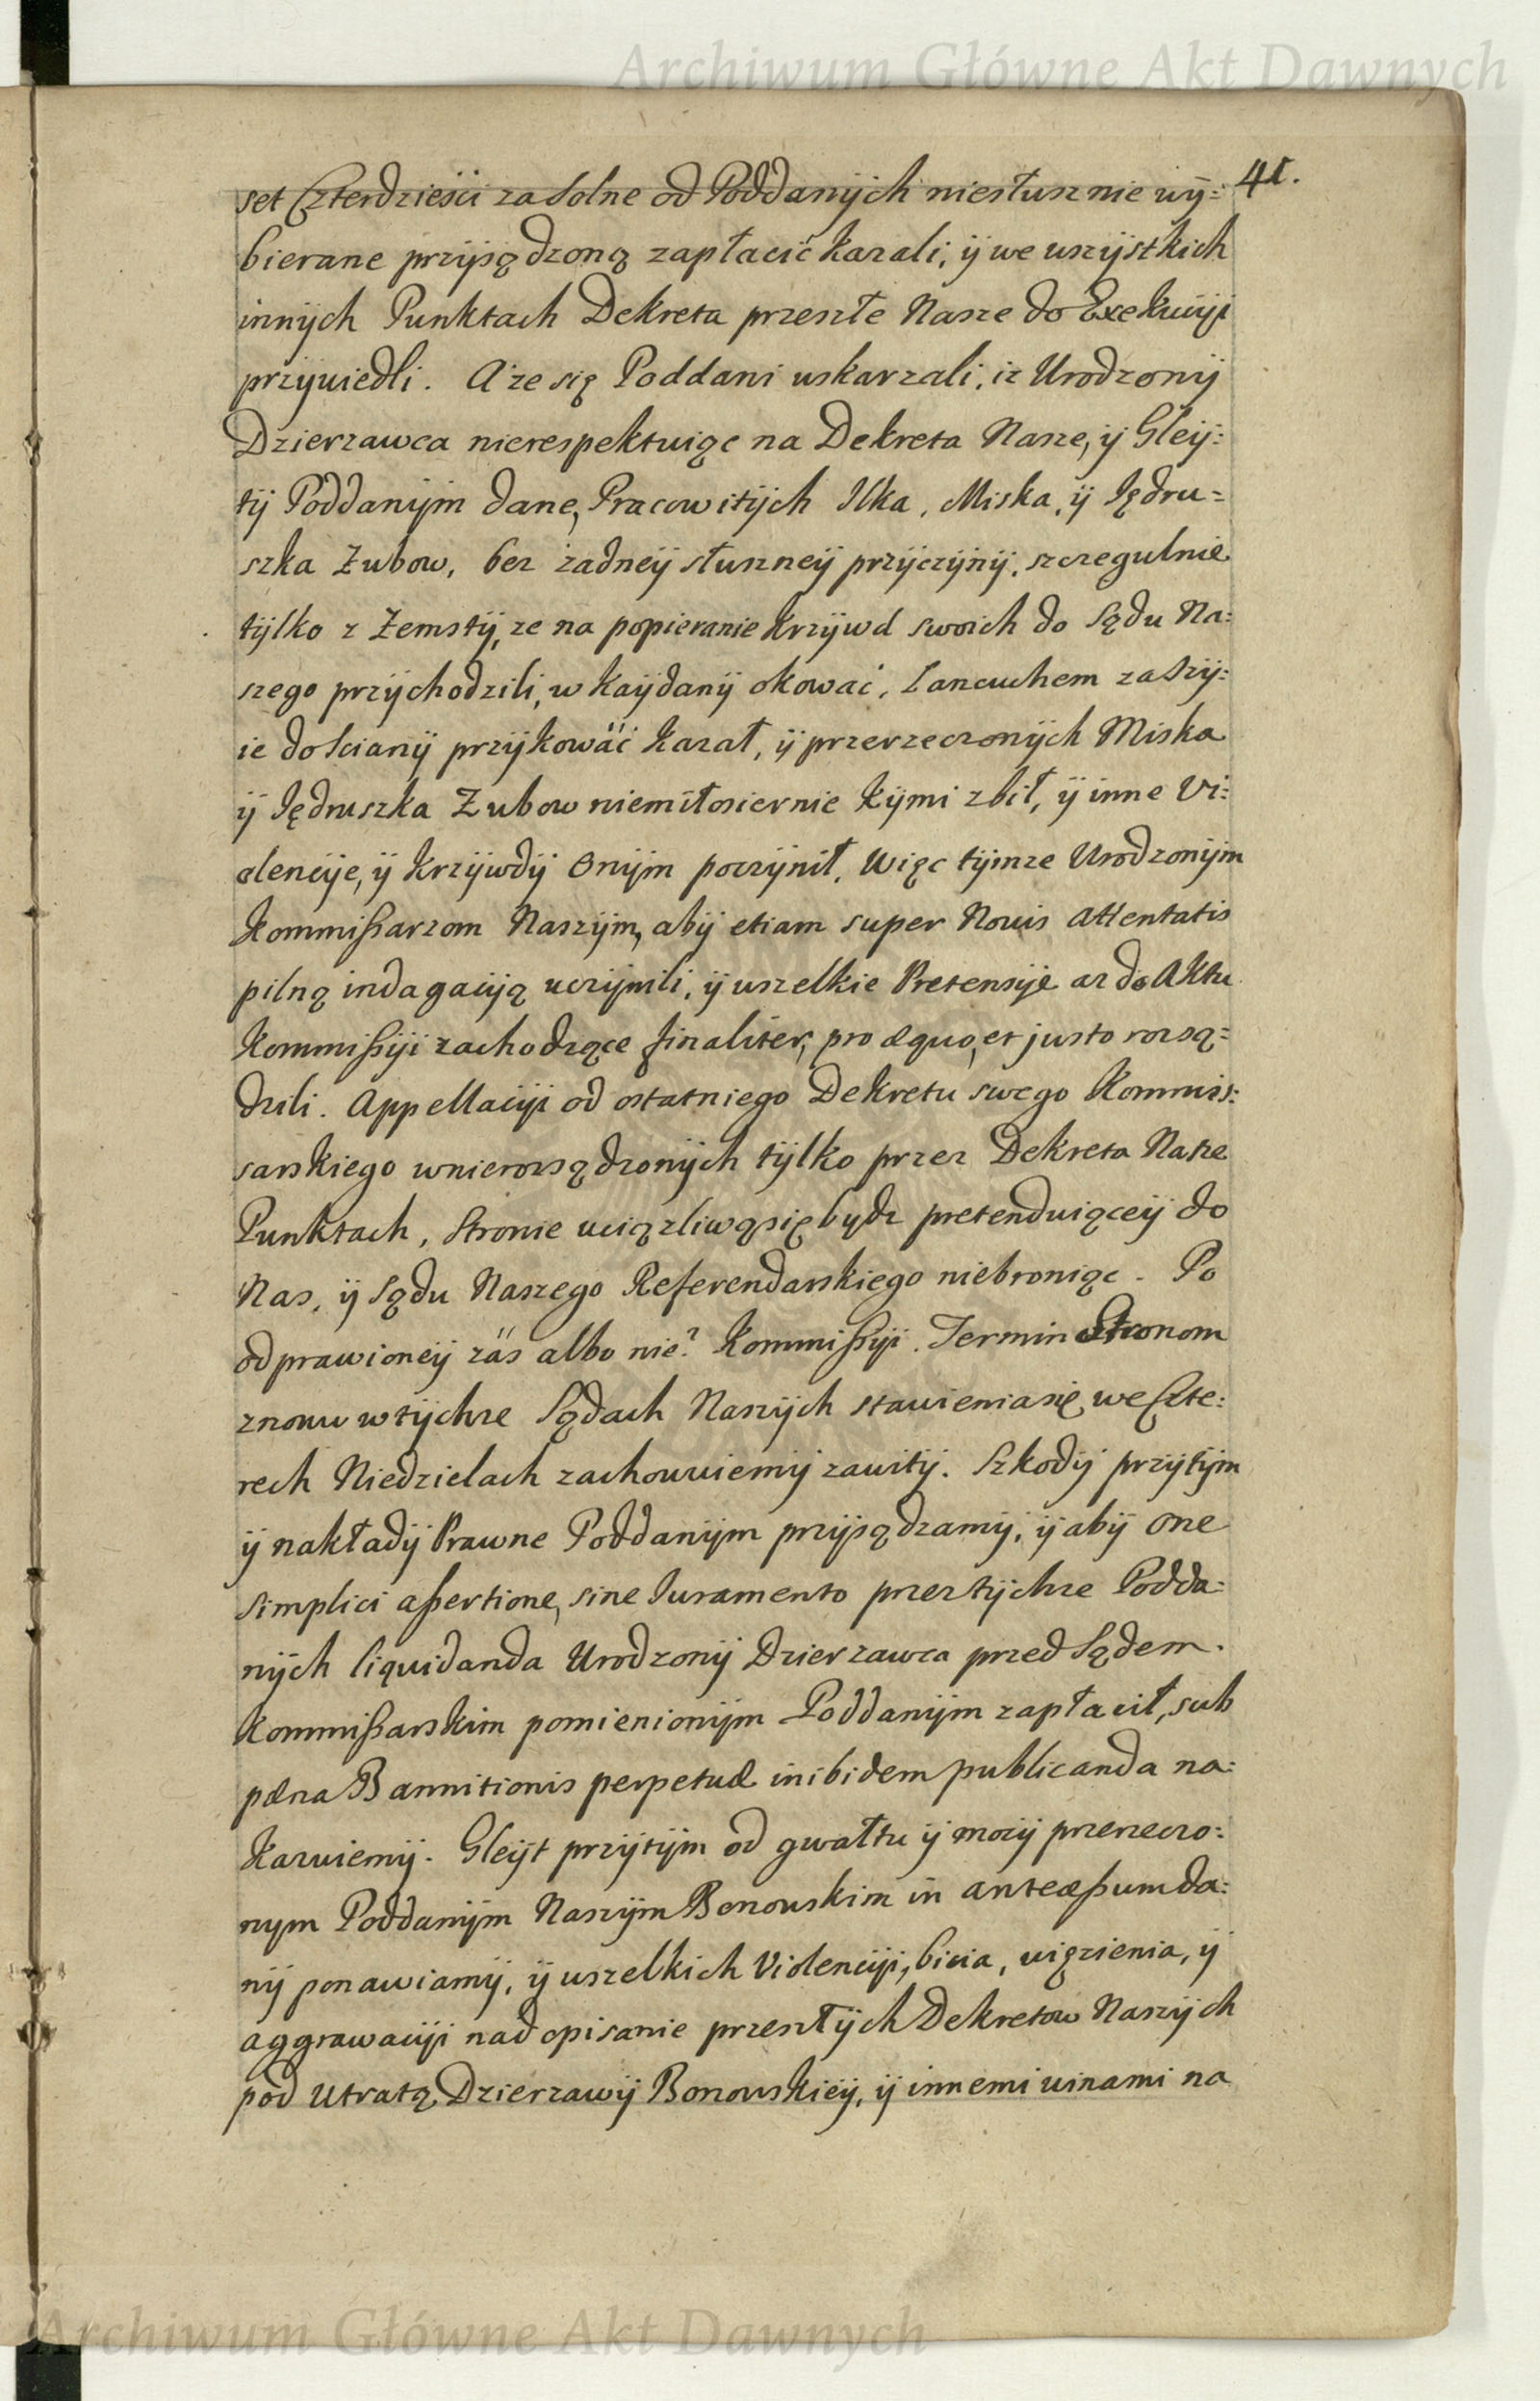 Archiwum Główne Akt Dawnych
41.
set Czterdzieści za Solne od Poddanÿch niesłusznie wÿ=
bierane przÿsądzoną zapłacić kazali, ÿ we wszÿstkich
innÿch Punktach Dekreta przeszłe Nasze do Exekucÿi
przÿwiedli. A że się Poddani uskarzali, iz Urodzonÿ
Dzierzawca nierespektuiąc na Dekreta Nasze, ÿ Gleÿ=
tÿ Poddanÿm dane, Pracowitÿch Ilka, Miska, ÿ Jędru=
szka Zubow, bez żadneÿ słuszneÿ przÿczÿnÿ, szczegulnie
tÿlko z Zemstÿ, ze na popieranie Krzÿwd swoich do Sądu Na=
szego przÿchodzili, w Kaÿdanÿ okować, Lancuchem za Szÿ=
ie do Scianÿ przÿkować kazał, ÿ przerzeczonÿch Miska
ÿ Jędruszka Zubow niemiłosiernie Kÿmi zbił, ÿ inne Vi=
olencÿe, ÿ Krzÿwdÿ Onÿm poczÿnił, Więc tÿmze Urodzonÿm
Kommißarzom Naszÿm, abÿ etiam super Novis Attentatis
pilną indagacÿą uczÿnili, ÿ wszelkie Pretensÿe az do Aktu
Kommißÿi zachodzące finaliter, pro æquo, et justo rozsą=
dzili. Appellacÿi od ostatniego Dekretu swego Kommis=
sarskiego w nierozsądzonÿch tÿlko przez Dekreta Nasze
Punktach, Stronie uciązliwą się bydz pretenduiąceÿ do
Nas, ÿ Sądu Naszego Referendarskiego niebroniąc. Po
odprawioneÿ zäs albo nie? Kommißÿi. Termin Stronom
znowu w tÿchze Sądach Naszÿch stawienia się, we Czte=
rech Niedzielach zachowuiemÿ zawitÿ. Szkodÿ przÿtÿm
ÿ nakładÿ Prawne Poddanÿm przÿsądzamÿ, ÿ abÿ one
simplici aßertione, sine Juramento przez tÿchze Podda=
nÿch liquidanda Urodzonÿ Dzierzawca przed Sądem
Kommißarskim pomienionÿm Poddanÿm zapłacił, sub
pæna Bannitionis perpetuæ inibidem publicanda na=
kazuiemÿ. Gleÿt przÿtÿm od gwałtu ÿ mocÿ przerzeczo=
nym Poddanÿm Naszÿm Bonowskim in anteaßum da=
nÿ ponawiamÿ, ÿ wszelkich Violencÿi, bicia, więzienia, ÿ
aggrawacÿi nad opisanie przeszłÿch Dekretow Naszÿch
pod Utratą Dzierzawÿ Bonowskieÿ, ÿ innemi winami na
Archiwum Główne Akt Dawnych